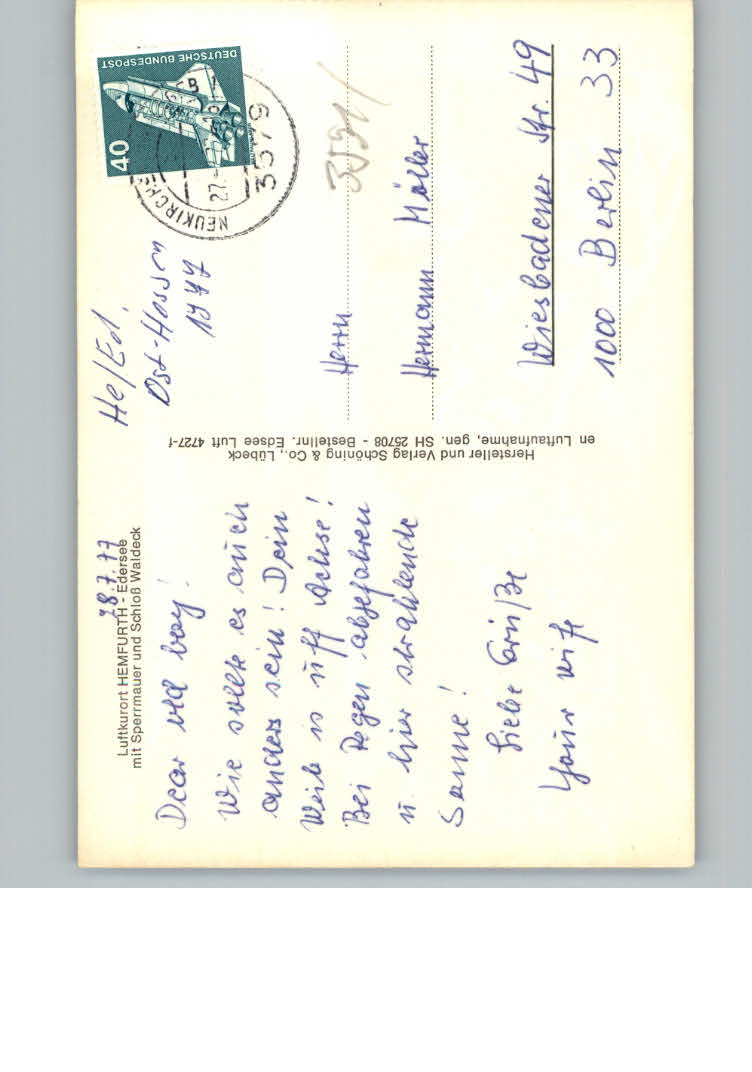 Luftkurort HEMFURTH - Edersee
mit Sperrmauer und Schloß Waldeck
28.7.77
Dear old boy!
Wie sollte es auch
anders sein! Dein
Weib is uff Achse!
Bei Regen abgefahren
u. hier strahlende
Sonne!
Liebe Grüße
Your wife
Hersteller und Verlag Schöning & Co., Lübeck
en Luftaufnahme, gen. SH 25708 - Bestellnr. Edsee Luft 4727-f
He/Ed.
Ost-Hessen
1977
DEUTSCHE BUNDESPOST
40
NEUKIRCHE
27.
3579
Herrn
Hermann Müller
Wiesbadener Str. 49
1000 Berlin 33